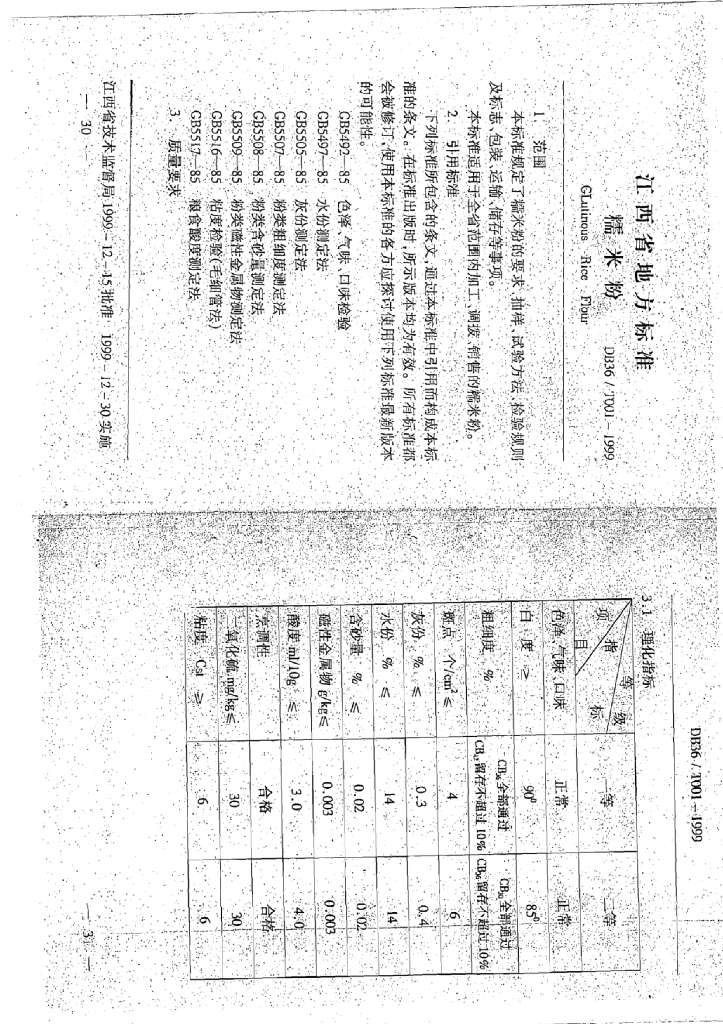 江西省地方标准
糯米粉 DB36/T001-1999
GLutinous Rice Flour
1. 范围
本标准规定了糯米粉的要求、抽样、试验方法、检验规则
及标志、包装、运输、储存等事项。
本标准适用于全省范围内加工、调拨、销售的糯米粉。
2. 引用标准
下列标准所包含的条文,通过本标准中引用而构成本标
准的条文。在标准出版时,所示版本均为有效。所有标准都
会被修订,使用本标准的各方应探讨使用下列标准最新版本
的可能性。
GB5492—85 色泽、气味、口味检验
GB5497—85 水份测定法
GB5505—85 灰份测定法
GB5507—85 粉类粗细度测定法
GB5508—85 粉类含砂量测定法
GB5509—85 粉类磁性金属物测定法
GB5516—85 粘度检验(毛细管法)
GB5517—85 粮食酸度测定法
3. 质量要求
江西省技术监督局1999-12-15批准 1999-12-30实施
— 30
DB36/T001-1999
3.1 理化指标
项目 指标 等级 一等 二等
色泽、气味、口味 正常 正常
白度 ≥ 90⁰ 85⁰
粗细度 % CB 全部通过 CB 留存不超过10% CB 全部通过 CB 留存不超过10%
斑点 个/cm² ≤ 4 6
灰份 % ≤ 0.3 0.4
水份 % ≤ 14 14
含砂量 % ≤ 0.02 0.02
磁性金属物 g/kg≤ 0.003 0.003
酸度 ml/10g ≤ 3.0 4.0
烹调性 合格 合格
二氧化硫 mg/kg≤ 30 30
粘度 Cst ≥ 6 6
— 31 —